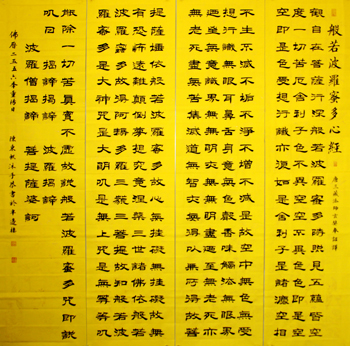 般若波羅蜜多心經
唐三藏法師玄奘奉詔譯
觀自在菩薩行深般若波羅蜜多時照見五蘊皆空
度一切苦厄舍利子色不異空空不異色色即是空
空即是色受想行識亦復如是舍利子是諸法空相
不生不滅不垢不淨不增不減是故空中無色無受
想行識無眼耳鼻舌身意無色聲香味觸法無眼界
乃至無意識界無無明亦無無明盡乃至無老死亦
無老死盡無苦集滅道無智亦無得以無所得故菩
提薩埵依般若波羅蜜多故心無罣礙無罣礙故無
有恐怖遠離顛倒夢想究竟涅槃三世諸佛依般若
波羅蜜多故得阿耨多羅三藐三菩提故知般若波
羅蜜多是大神咒是大明咒是無上咒是無等等咒
能除一切苦真實不虛故說般若波羅蜜多咒即說
咒曰 揭諦揭諦 波羅揭諦
波羅僧揭諦 菩提薩婆訶
佛曆二五五六年